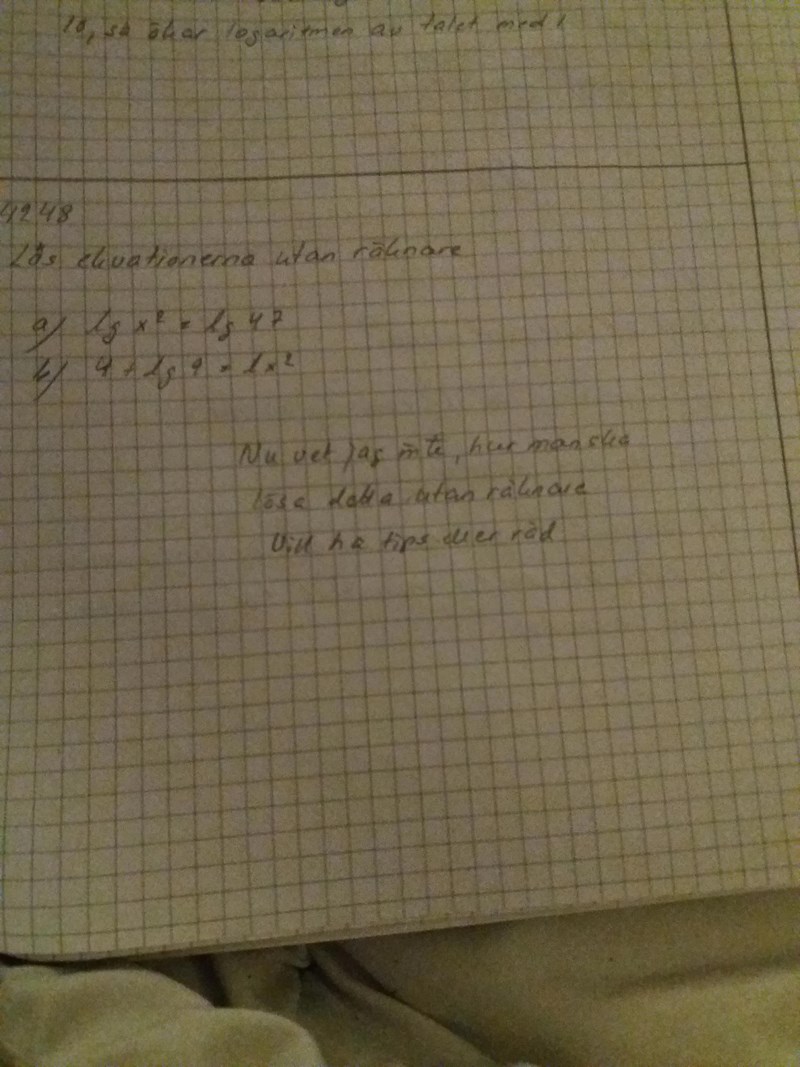 10, så ökar logaritmen av talet med 1
4248
Lös ekvationerna utan räknare
a) lg x² = lg 47
b) 4 + lg 9 = lx²
Nu vet jag inte, hur man ska
lösa detta utan räknare
Vill ha tips eller råd